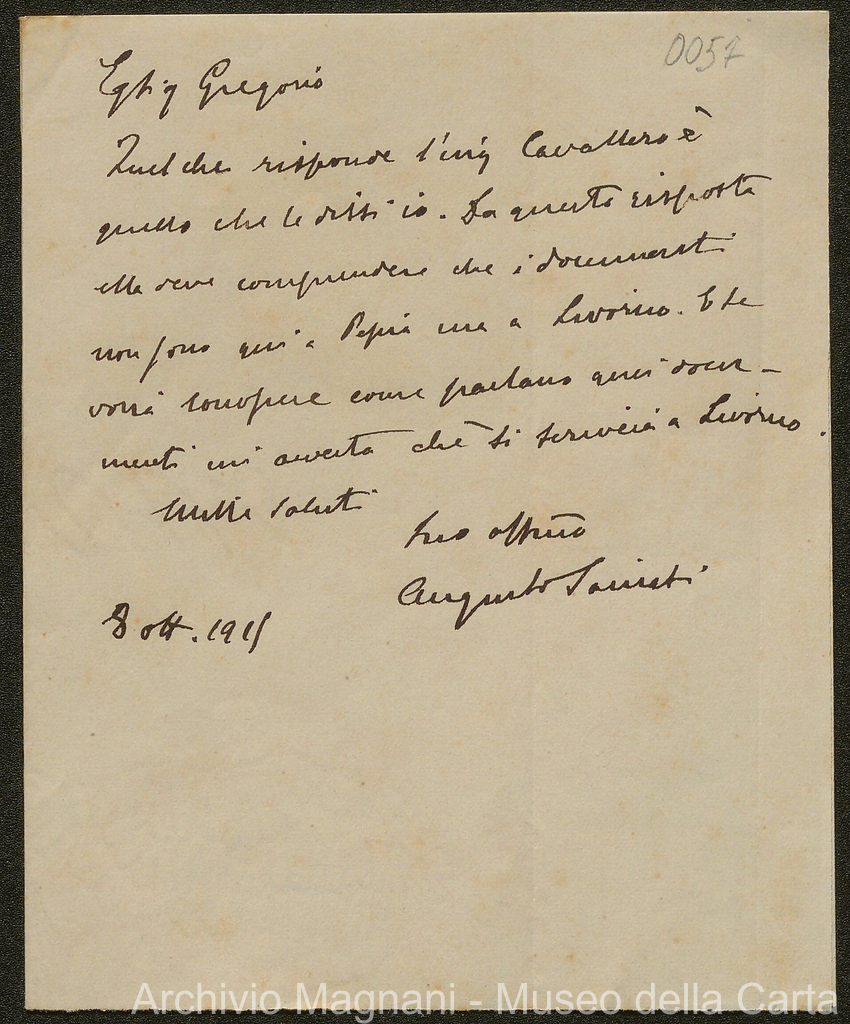 0057
Eg. Sig Gregorio
Quel che risponde l'ing Cavallero è
quello che le dissi io. Da questa risposta
ella deve comprendere che i documenti
non sono qui a Pescia ma a Livorno. E se
vorrà conoscere come parlano quei docu-
menti mi avverta chè si scriverà a Livorno.
Mille saluti
Suo affmo
Augusto
8 ott. 1915
Archivio Magnani - Museo della Carta